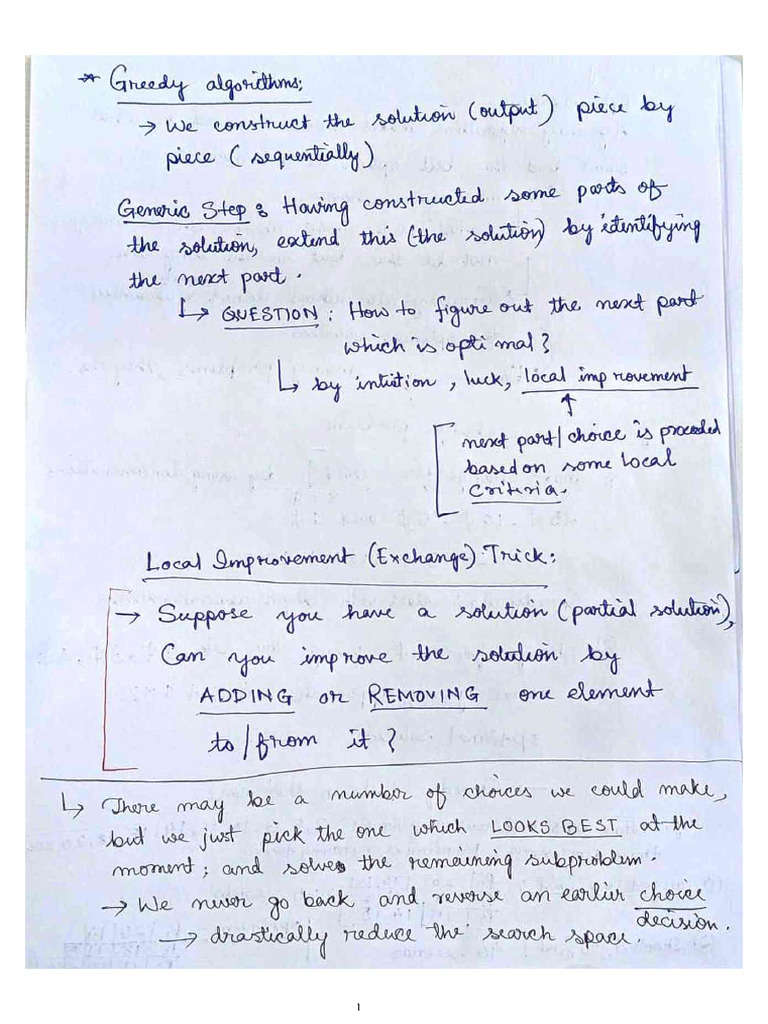 * Greedy algorithms:
→ We construct the solution (output) piece by
piece (sequentially)
Generic Step: Having constructed some parts of
the solution, extend this (the solution) by identifying
the next part.
↳ QUESTION: How to figure out the next part
which is optimal?
↳ by intution, luck, local improvement
↑
next part/choice is proceeded
based on some local
criteria.
Local Improvement (Exchange) Trick:
→ Suppose you have a solution (partial solution),
Can you improve the solution by
ADDING or REMOVING one element
to/from it?
↳ There may be a number of choices we could make,
but we just pick the one which LOOKS BEST at the
moment; and solves the remaining subproblem.
→ We never go back and reverse an earlier choice
decision.
→ drastically reduce the search space.
1